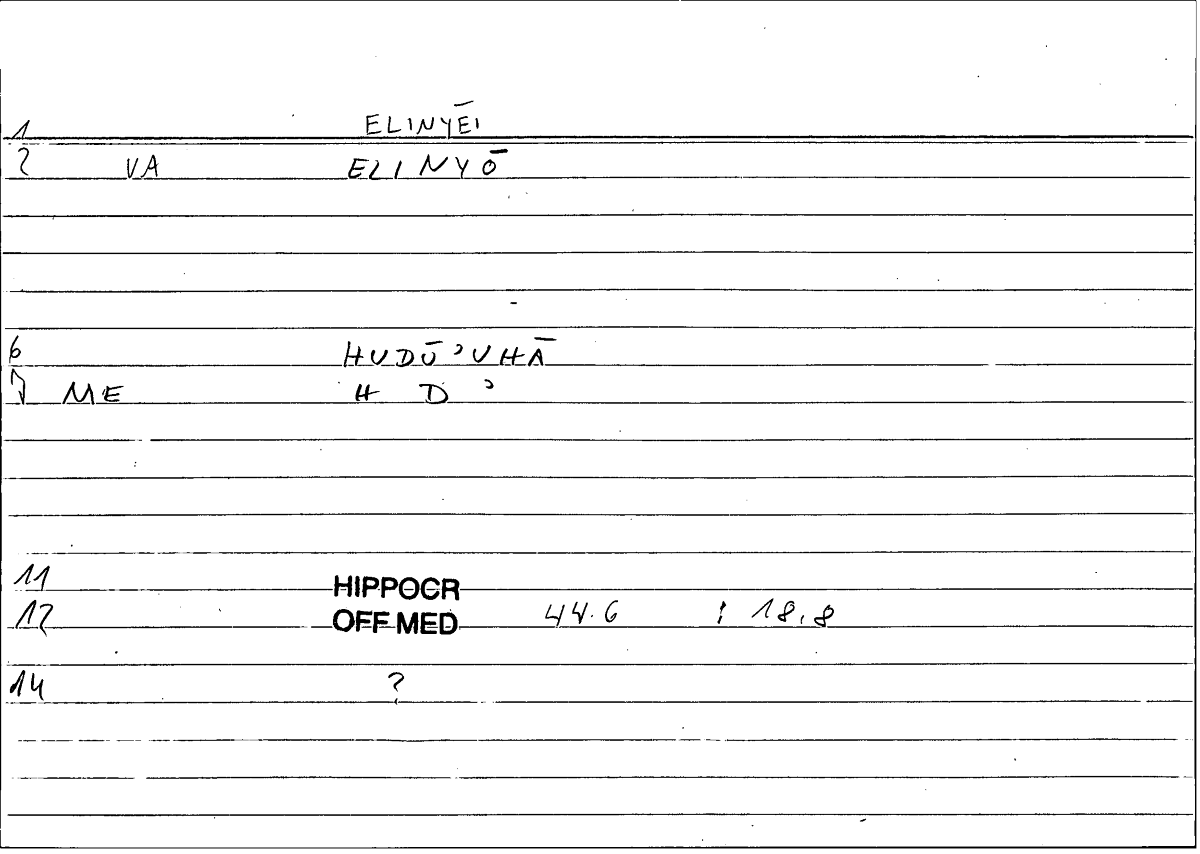 1 ELINYĒI
2 VA ELINYŌ
6 HUDŪʾUHĀ
7 ME H D ʾ
11 HIPPOCR
12 OFF MED 44.6 ; 18.8
14 ?